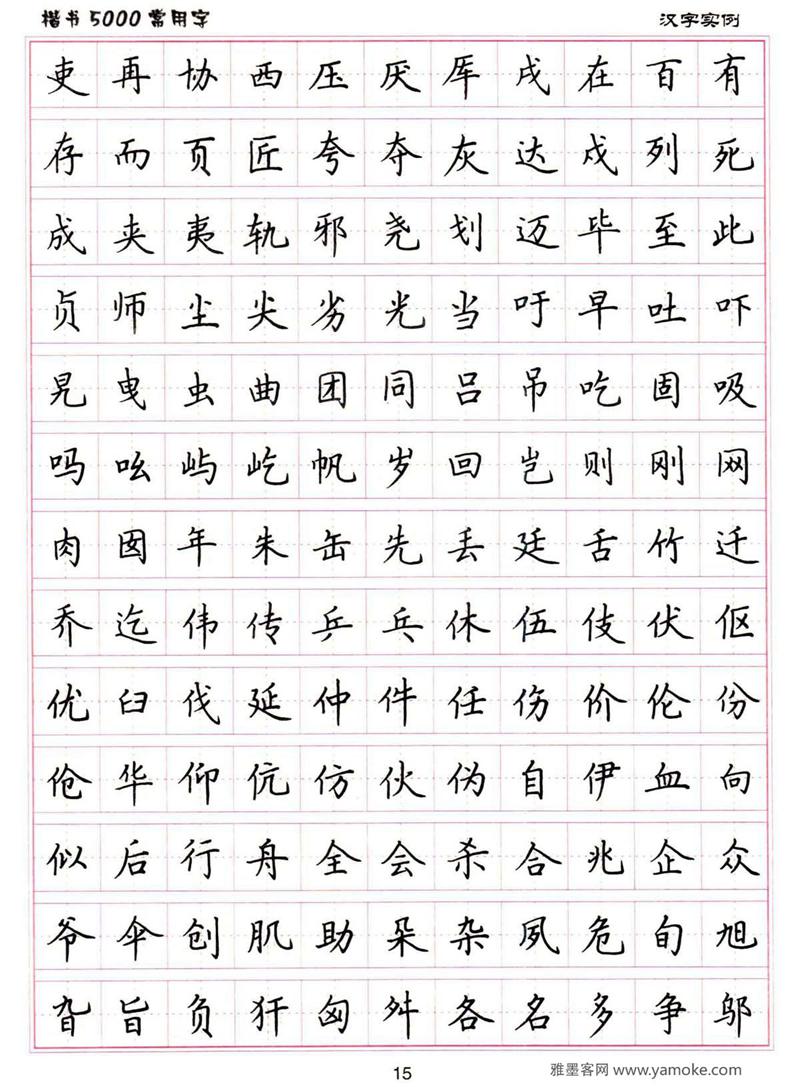 楷书5000常用字 汉字实例
吏再协西压厌厍戌在百有
存而页匠夸夺灰达戍列死
成夹夷轨邪尧划迈毕至此
贞师尘尖劣光当吁早吐吓
晃曳虫曲团同吕吊吃固吸
吗吆屿屹帆岁回岂则刚网
肉囡年朱缶先丢廷舌竹迁
乔迄伟传乒乓休伍伎伏伛
优臼伐延仲件任伤价伦份
伧华仰伉仿伙伪自伊血向
似后行舟全会杀合兆企众
爷伞创肌助朵杂夙危旬旭
旮旨负犴匈舛各名多争邬
15 雅墨客网 www.yamoke.com